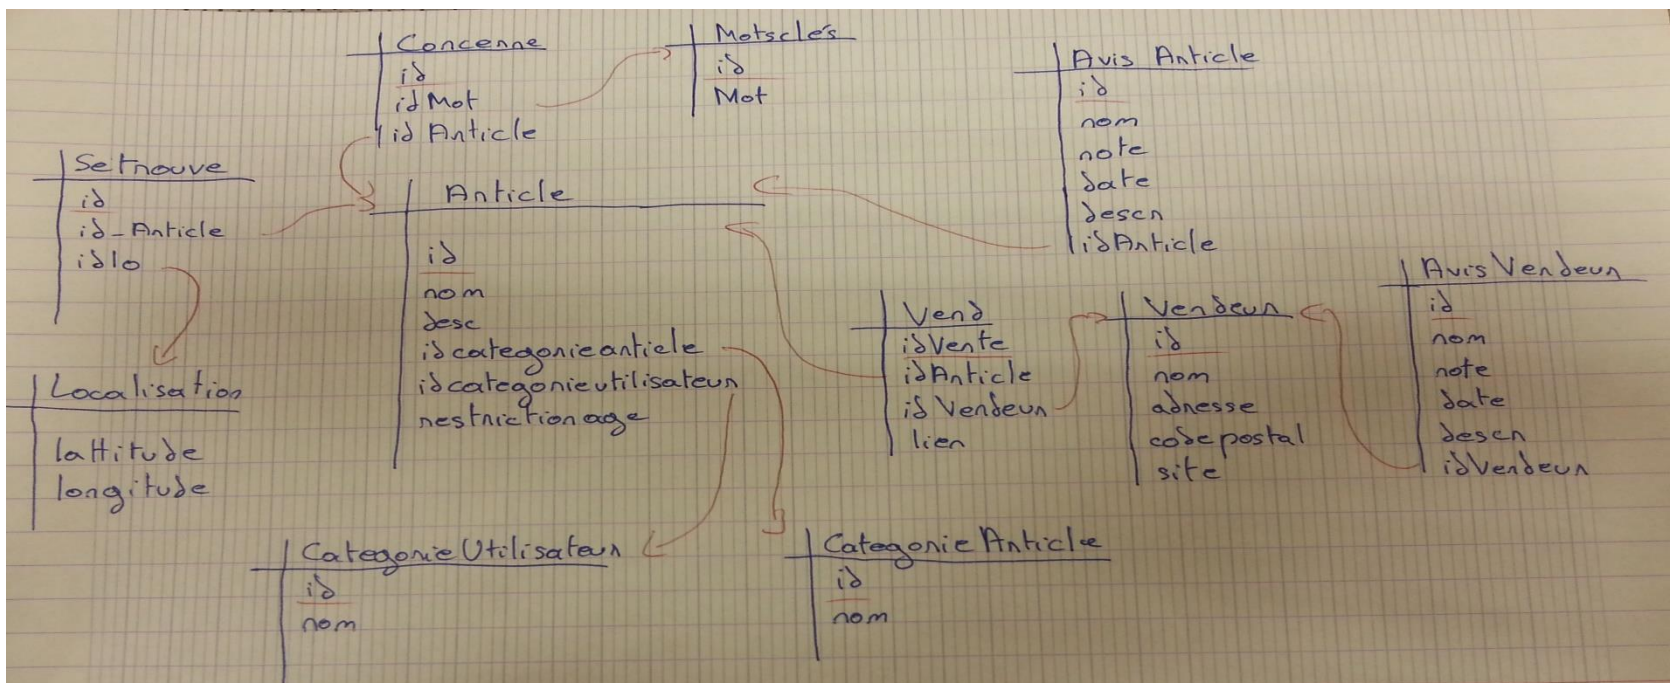 Concerne
id
idMot
idArticle
Motsclés
id
Mot
Avis Article
id
nom
note
date
descr
idArticle
Se trouve
id
id_Article
idlo
Article
id
nom
desc
idcategoriearticle
idcategorieutilisateur
restrictionage
Vend
idVente
idArticle
idVendeur
lien
Vendeur
id
nom
adresse
codepostal
site
AvisVendeur
id
nom
note
date
descr
idVendeur
Localisation
lattitude
longitude
CategorieUtilisateur
id
nom
CategorieArticle
id
nom